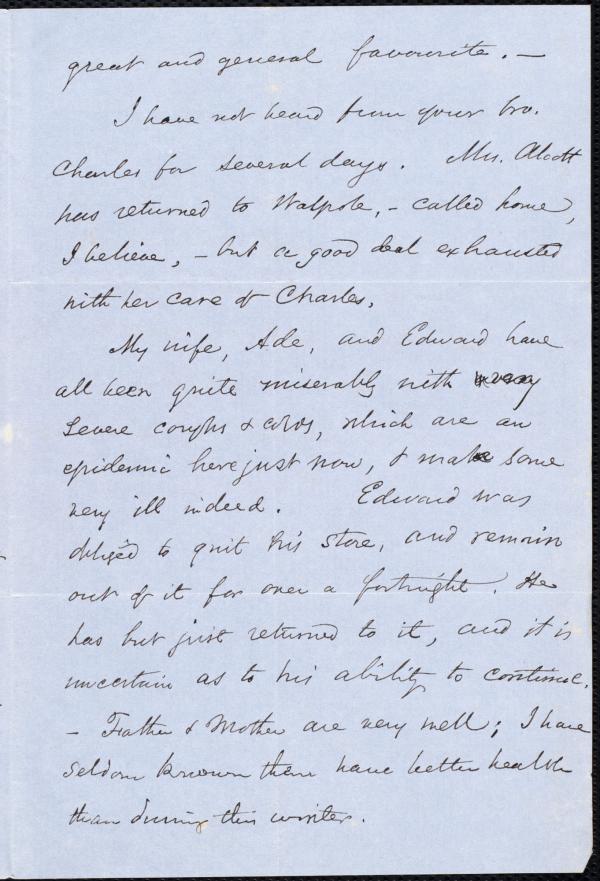 great and general favourite. —
I have not heard from your bro.
Charles for several days. Mrs. Alcott
has returned to Walpole, - called home,
I believe, - but a good deal exhausted
with her care of Charles.
My wife, Ade, and Edward have
all been quite miserably with very
severe coughs & colds, which are an
epidemic here just now, & make some
very ill indeed. Edward was
obliged to quit his store, and remain
out of it for over a fortnight. He
has but just returned to it, and it is
uncertain as to his ability to continue.
- Father & Mother are very well; I have
seldom known them have better health
than during this winter.